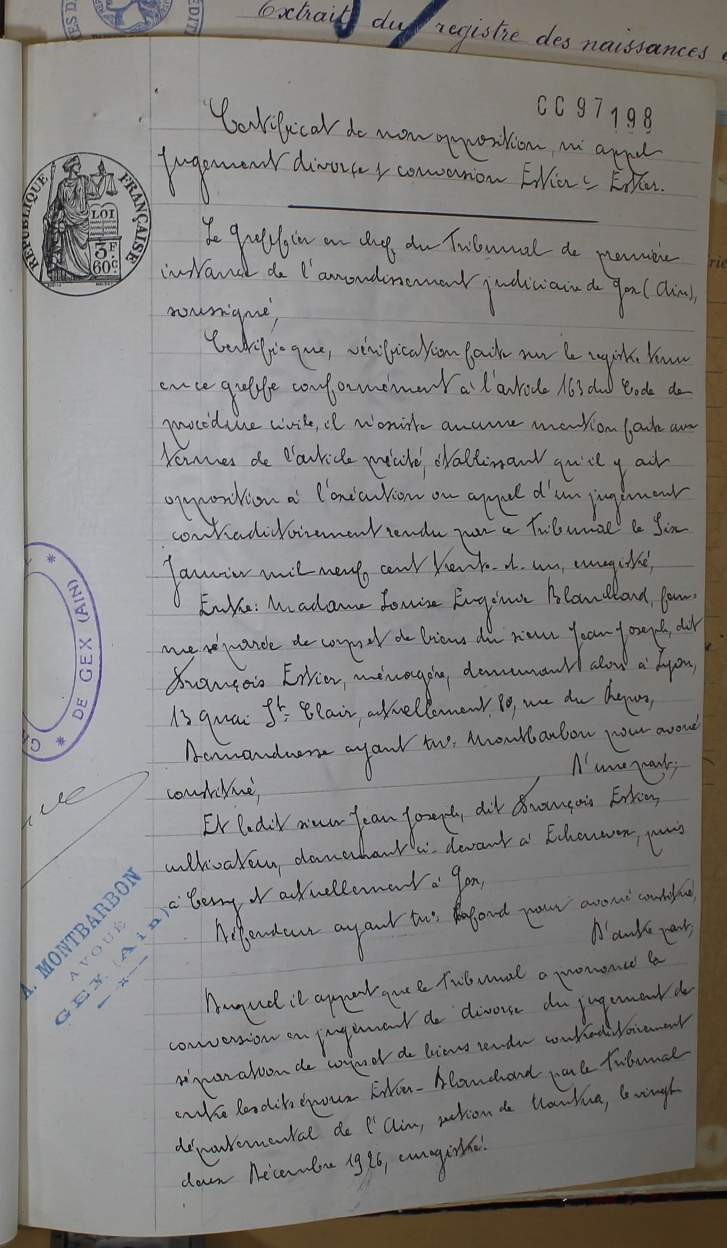 Extrait du registre des naissances
CC97198
Certificat de non opposition, ni appel
jugement divorce s/ conversion Estier c/ Estier.
RÉPUBLIQUE FRANÇAISE
LOI
3F
60c
Le Greffier en chef du Tribunal de première
instance de l'arrondissement judiciaire de Gex (Ain),
soussigné,
Certifie que, vérification faite sur le registre tenu
en ce greffe conformément à l'article 163 du Code de
procédure civile, il n'existe aucune mention faite aux
termes de l'article précité, établissant qu'il y ait
opposition à l'exécution ou appel d'un jugement
contradictoirement rendu par ce Tribunal le Six
Janvier mil neuf cent trente-et-un, enregistré,
Entre: Madame Louise Eugénie Blanchard, fem-
me séparée de corps et de biens du sieur Jean Joseph, dit
François Estier, ménagère, demeurant alors à Lyon,
13 quai St. Clair, actuellement, 80, rue du Repos,
Demanderesse ayant Me Montbarbon pour avoué
constitué,
D'une part;
Et ledit sieur Jean Joseph, dit François Estier,
cultivateur, demeurant ci-devant à Echenevex, puis
à Cessy et actuellement à Gex,
Défendeur ayant Me Lafond pour avoué constitué,
D'autre part,
Duquel il appert que le Tribunal a prononcé la
conversion en jugement de divorce du jugement de
séparation de corps et de biens rendu contradictoirement
entre lesdits époux Estier-Blanchard par le Tribunal
départemental de l'Ain, section de Nantua, le vingt
deux Décembre 1926, enregistré.
* DE GEX (AIN) *
A. MONTBARBON
AVOUÉ
GEX (Ain)